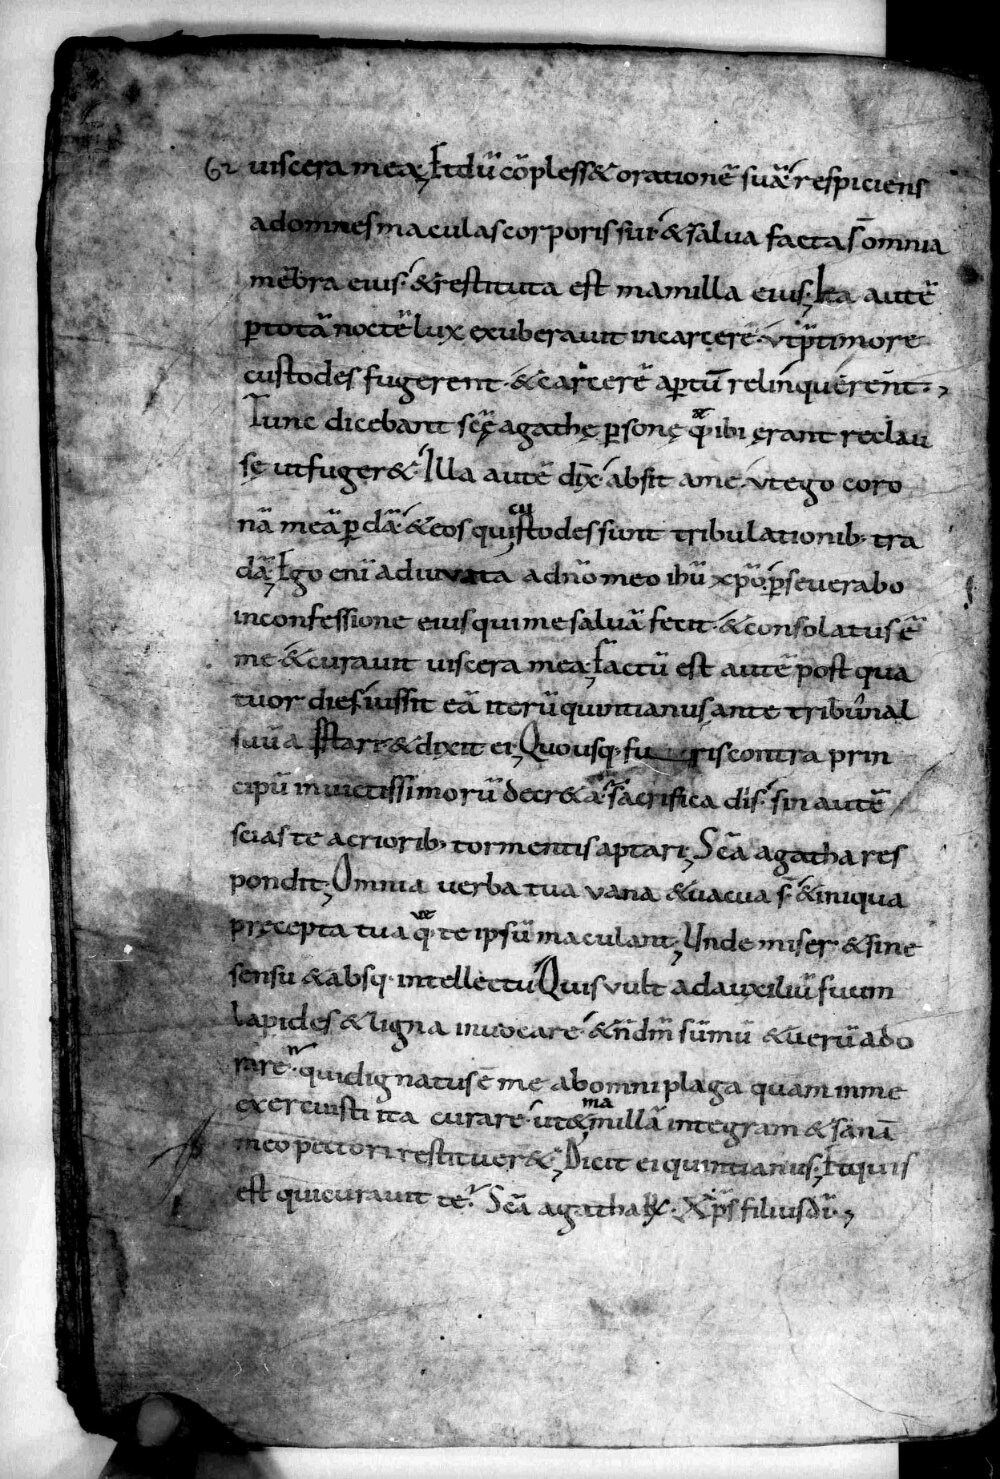 uiscera mea; Et dū cōpless& orationē suā respiciens
ad omnes maculas corporis sui & salua facta s̄ omnia
mēbra eius· & restituta est mamilla eius; Ita autē
p̱ totā noctē lux exuberauit in carcerē· ut p̱ timore
custodes fugerent· & carcerē ap̱tū relinquerent·,
Tunc dicebant sc̄ę agathę p̱sonę q̄ ibi erant reclau
sę ut fuger&· Illa autē dix̄· absit a me· ut ego coro
nā meā p̱dā· & eos qui custodes sunt tribulationib· tra
dā; Ego enī adiuuata a dn̄o meo ihū xp̄o· p̱seuerabo
in confessione eius qui me saluā fecit· & consolatus ē
me· & curauit uiscera mea; Factū est autē post qua
tuor dies iussit eā iterū quintianus ante tribunal
suū astari· & dixit ei; Quousq· contra prin
cipū inuictissimorū decr&a· sacrifica diis· sin autē
scias te acriorib· tormentis aptari; Sc̄a agatha res
pondit; Omnia uerba tua uana & uacua s̄· & iniqua
pręcepta tua q̄· te ipsū maculant; Unde miser & sine
sensu & absq· intellectu· Quis uult ad auxiliū suum
lapides & ligna inuocare· & n̄ dm̄ sūmū & uerū ado
rare· qui dignatus ē me ab omni plaga quam in me
exercuisti ita curare· ut & mamillā integram & sanā
meo pectori restituer&; Dicit ei quintianus; Et quis
est qui curauit te? Sc̄a agatha Rx̄· Xp̄s filius dī·,